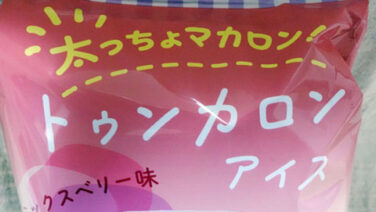 太っちょマカロン!
トゥンカロン
アイス
ックスベリー味